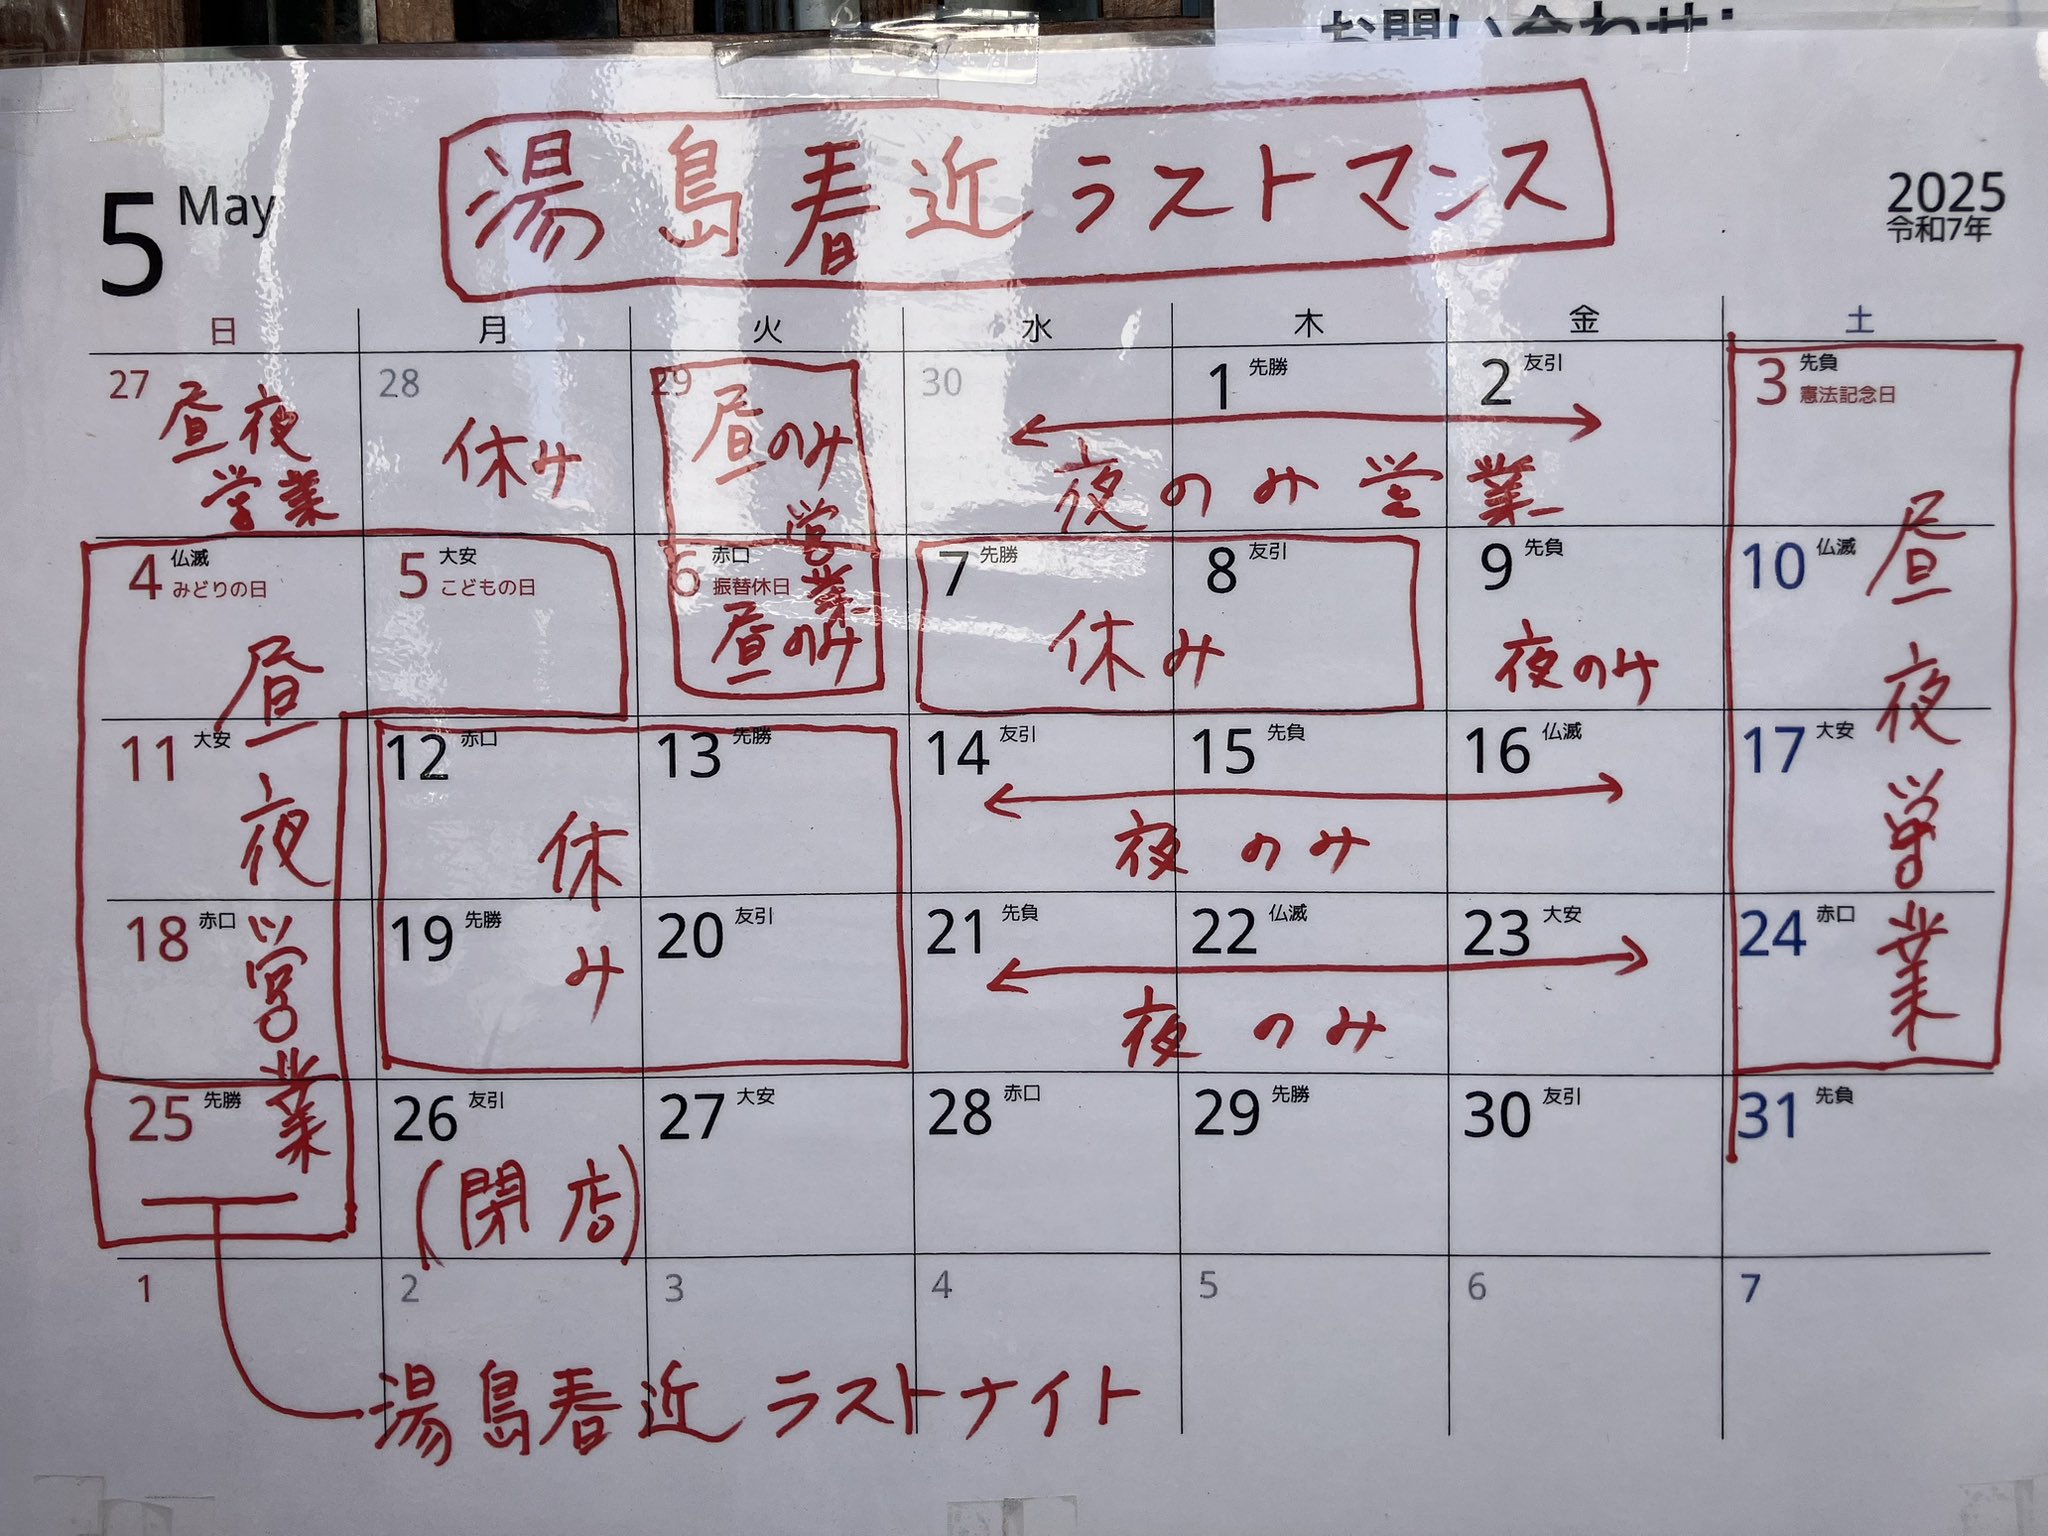 お問い合わせ:
湯島春近ラストマンス
5 May
2025
令和7年
日 月 火 水 木 金 土
27 28 29 30 1 先勝 2 友引 3 先負 憲法記念日
昼夜営業
休み
昼のみ営業
夜のみ営業
4 仏滅 みどりの日 5 大安 こどもの日 6 赤口 振替休日 7 先勝 8 友引 9 先負 10 仏滅
昼のみ
休み
夜のみ
昼夜営業
昼夜営業
11 大安 12 赤口 13 先勝 14 友引 15 先負 16 仏滅 17 大安
休み
夜のみ
18 赤口 19 先勝 20 友引 21 先負 22 仏滅 23 大安 24 赤口
夜のみ
25 先勝 26 友引 27 大安 28 赤口 29 先勝 30 友引 31 先負
(閉店)
1 2 3 4 5 6 7
湯島春近ラストナイト